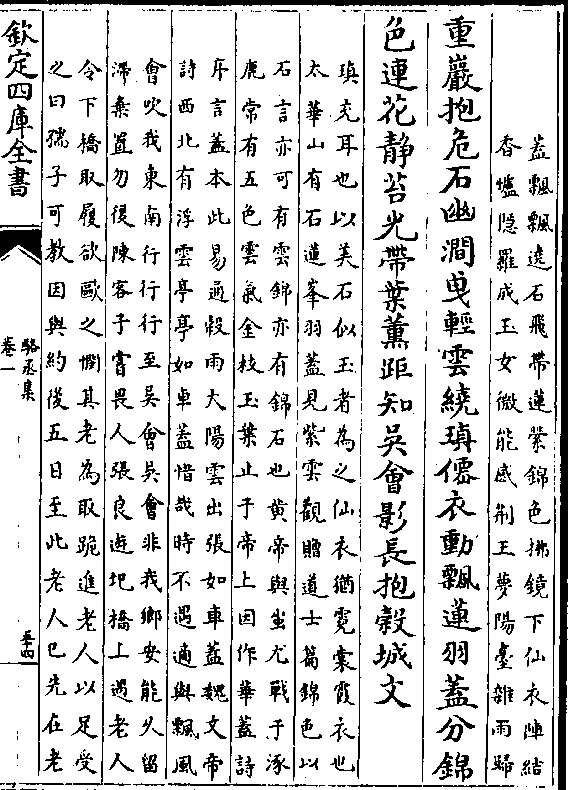 蓋飄飄遶石飛帶蓮縈錦色拂鏡下仙衣陣結
香爐隠羅成玉女微能感荆王夢陽臺雜雨歸
重巖抱危石幽澗曳輕雲繞瑱僊衣動飄蓮羽蓋分錦
色連花静苔光帶葉薰距知吳會影長抱榖城文
瑱充耳也以美石似玉者為之仙衣猶霓裳霞衣也
太華山有石蓮峯羽蓋見紫雲觀贈道士篇錦色以
石言亦可有雲錦亦有錦石也黄帝與蚩尤戰于涿
鹿常有五色雲氣金枝玉葉止于帝上因作華蓋詩
序言蓋本此易通榖雨大陽雲出張如車蓋魏文帝
詩西北有浮雲亭亭如車蓋惜哉時不遇適與飄風
會吹我東南行行行至吳會吳會非我鄉安能久留
滯棄置勿復陳客子嘗畏人張良遊圯橋上遇老人
令下橋取履欲歐之憫其老為取跪進老人以足受
之曰孺子可教因與約後五日至此老人已先在老
欽定四庫全書
駱丞集
卷一